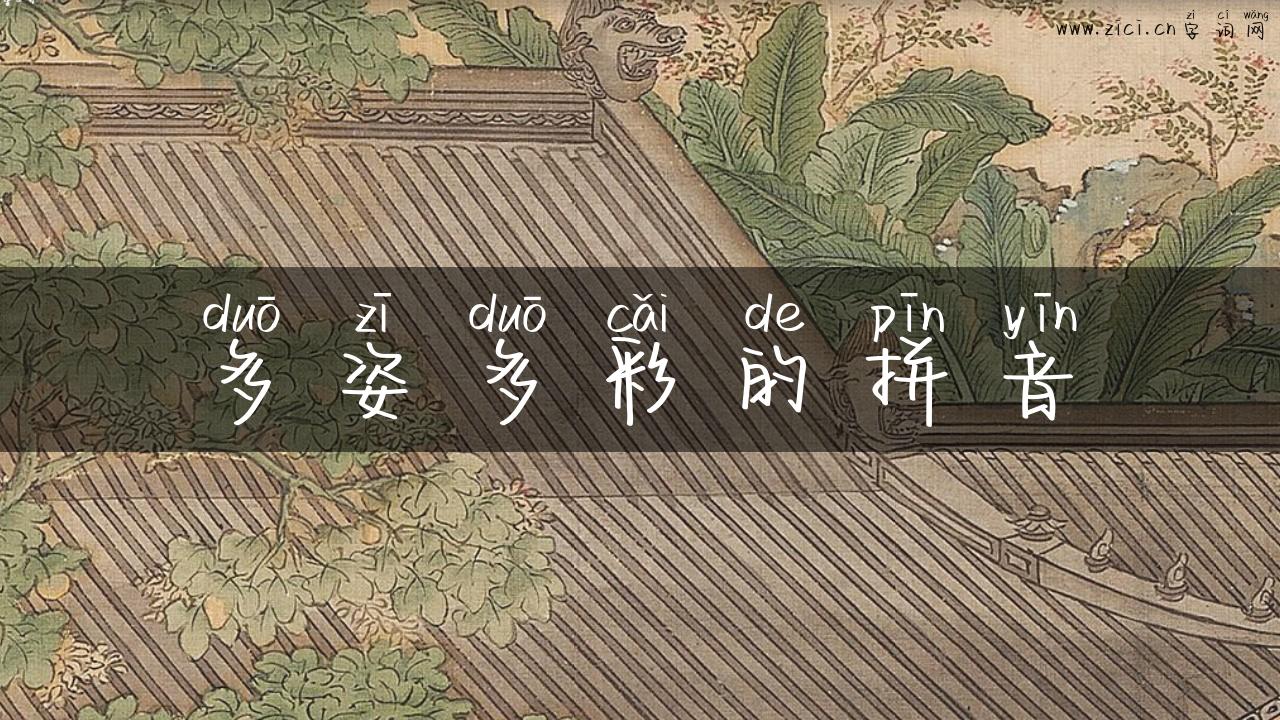 zì cí wǎng
www.zici.cn 字词网
duō zī duō cǎi de pīn yīn
多姿多彩的拼音